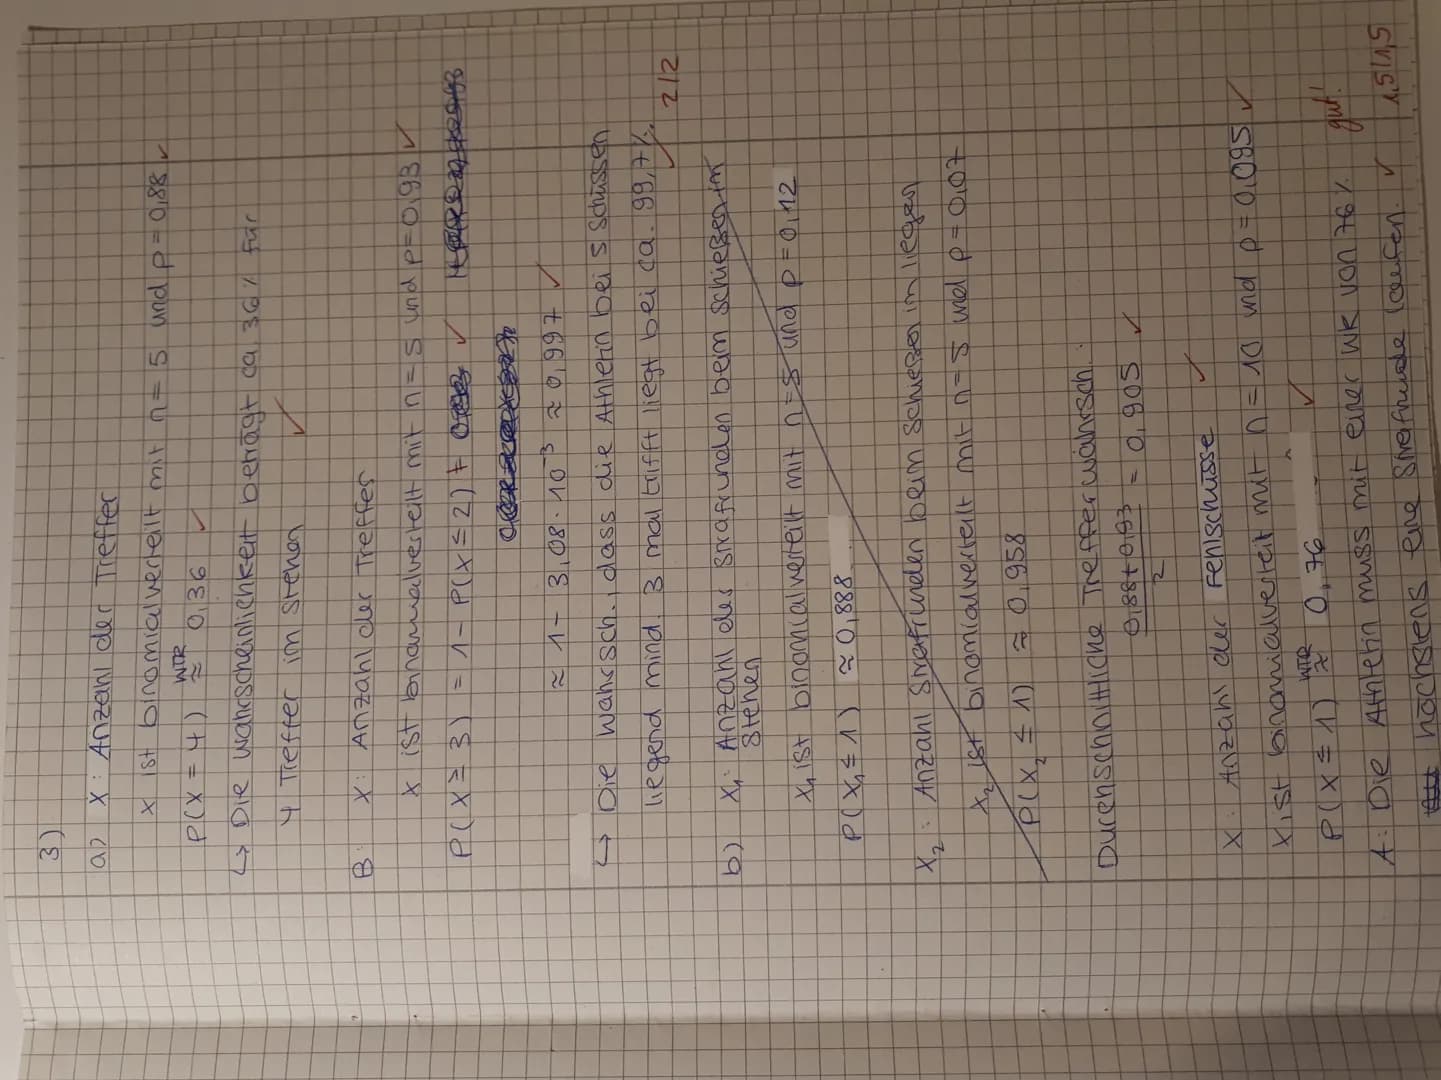 3)
a) X: Anzahl der Treffer
X ist binomialverteilt mit n = 5 und p = 0,88 ✓
P(X = 4) WTR ≈ 0,36 ✓
↳ Die Wahrscheinlichkeit beträgt ca. 36% für
4 Treffer im Stehen ✓
B: X: Anzahl der Treffer
X ist binomialverteilt mit n = 5 und p = 0,93 ✓
P(X ≥ 3) = 1 - P(X ≤ 2) ✓
≈ 1 - 3,08 · 10⁻³ ≈ 0,997 ✓
↳ Die Wahrsch., dass die Athletin bei 5 Schüssen
liegend mind. 3 mal trifft liegt bei ca. 99,7%. ✓
2/2
b) X₁: Anzahl der Strafrunden beim Schießen im
Stehen
X₁ ist binomialverteilt mit n = 5 und p = 0,12
P(X₁ ≤ 1) ≈ 0,888
X₂: Anzahl Strafrunden beim Schießen im liegen
X₂ ist binomialverteilt mit n = 5 und p = 0,07
P(X₂ ≤ 1) ≈ 0,958
Durchschnittliche Trefferwahrsch.:
0,88 + 0,93 / 2 = 0,905 ✓
X: Anzahl der Fehlschüsse ✓
X ist binomialverteilt mit n = 10 und p = 0,095 ✓
P(X ≤ 1) WTR ≈ 0,76 ✓
A: Die Athletin muss mit einer WK von 76% gut!
höchstens eine Strafrunde laufen. ✓ 1,5/1,5